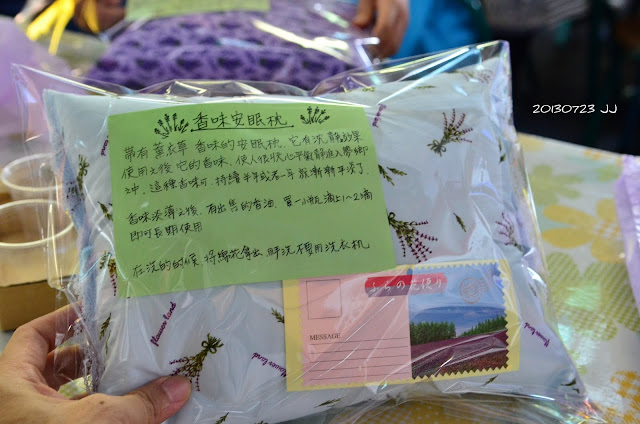 20130723 JJ
香味安眠枕
帶有薰衣草香味的安眠枕,它有沉靜效果
使用之後它的香味,使人很快心平氣靜進入夢鄉
之中,這種香味可持續半年或者一年就漸漸平淡了.
香味淡薄之後,有出售的香油,買一小瓶滴上1~2滴
即可長期使用
在洗的的候 將 拿出 鮮洗不要用洗衣机
ふらの花便り
MESSAGE
flower land
flower land
flower land